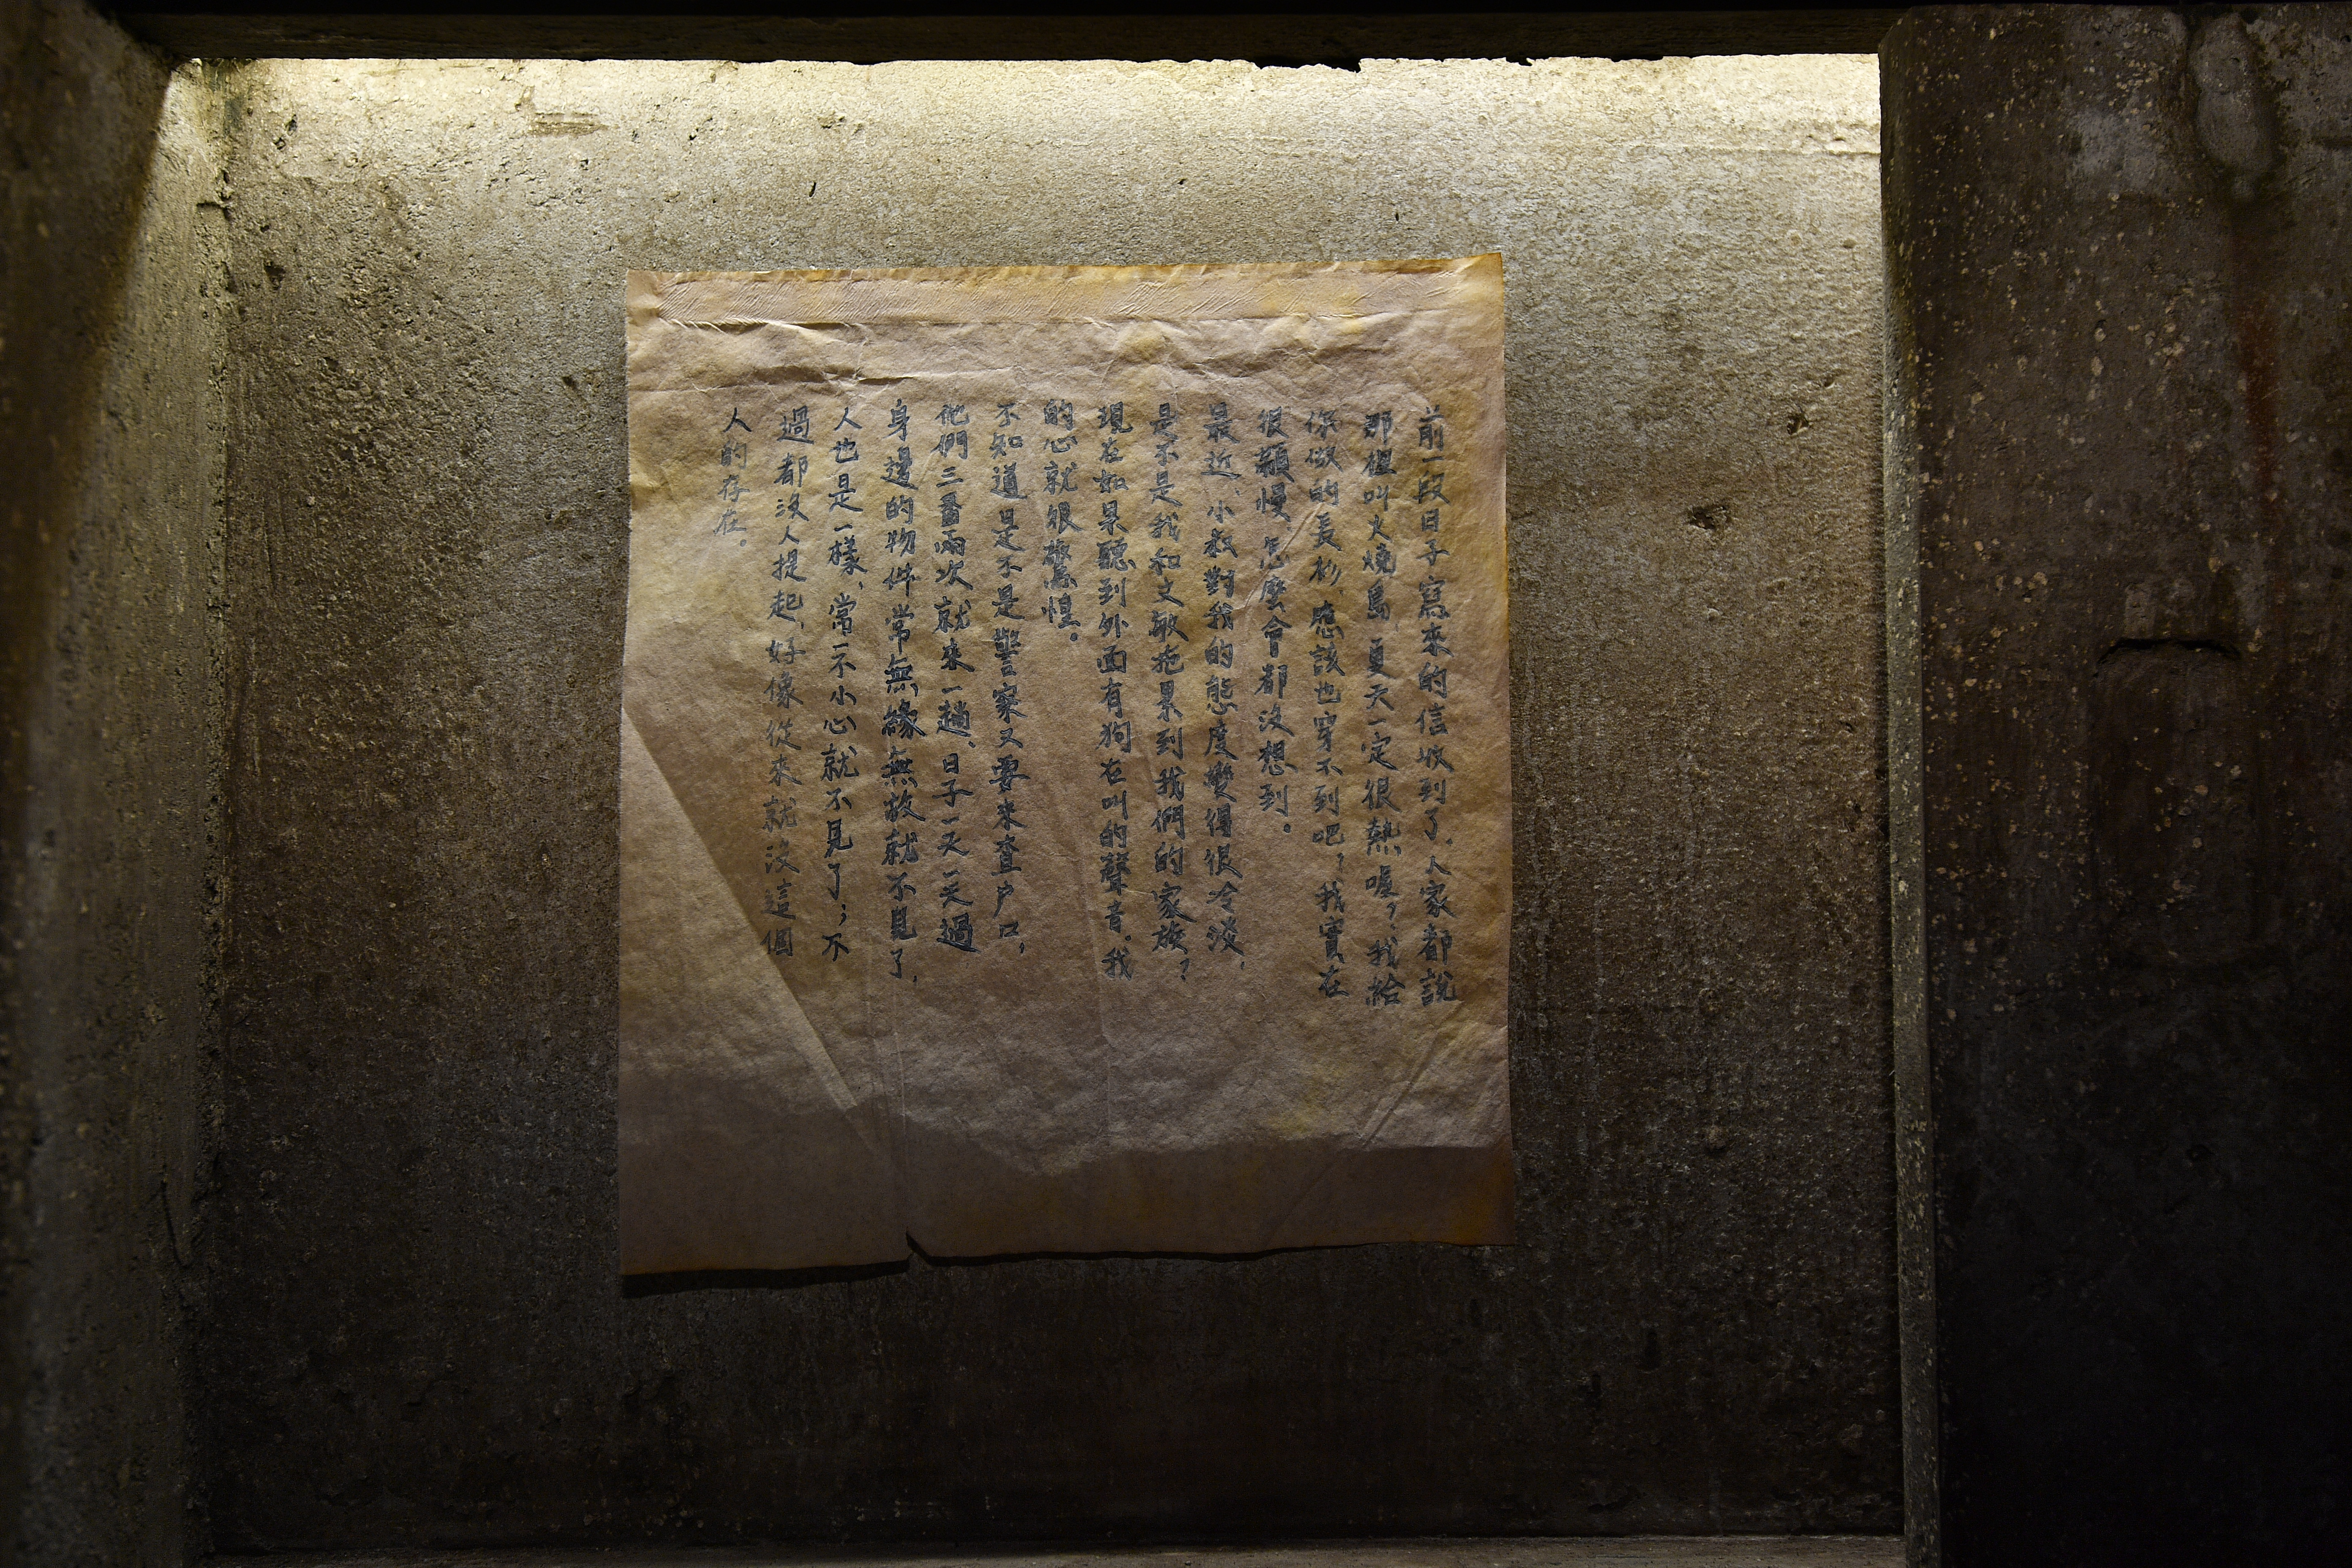 前一段日子寫來的信收到了，人家都說
那個叫火燒島夏天一定很熱喔？我給
你做的長衫，應該也穿不到吧？我實在
很顢慢，怎麼會都沒想到。
最近，小叔對我的態度變得很冷淡，
是不是我和文敏拖累到我們的家族？
現在如果聽到外面有狗在叫的聲音。我
的心就很驚惶。
不知道是不是警察又要來查戶口，
他們三番兩次就來一趟，日子一天一天過
身邊的物件常無緣無故就不見了，
人也是一樣，常一不小心就不見了；不
過都沒人提起，好像從來就沒這個
人的存在。